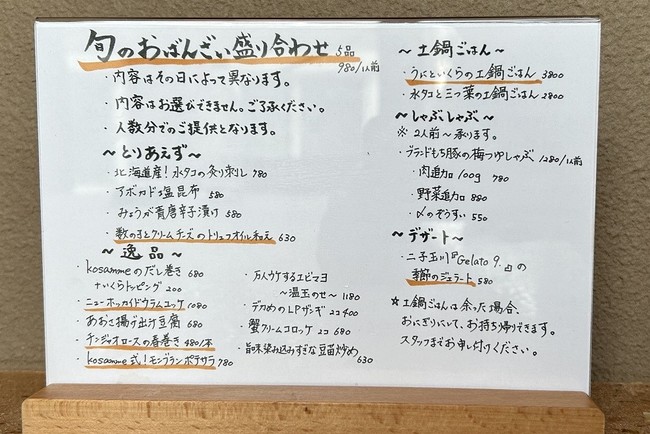 旬のおばんざい盛り合わせ 5品 980/1人前
・内容はその日によって異なります。
・内容はお選びできません。ご了承ください。
・人数分でのご提供となります。
〜とりあえず〜
・北海道産!水タコの炙り刺し 780
・アボカド塩昆布 580
・みょうが青唐辛子漬け 580
・数の子とクリームチーズのトリュフオイル和え 630
〜逸品〜
・kosammeのだし巻き 680
+いくらトッピング 200
・ニューホッカイドウラムユッケ 1080
・あおさ揚げ出汁豆腐 680
・チンジャオロースの春巻き 480/本
・kosamme式!モンブランポテサラ 780
・万人ウケするエビマヨ
〜温玉のせ〜 1180
・デカめのLPザンギ 2コ400
・蟹クリームコロッケ 2コ 680
・旨味染み込みすぎな豆苗炒め 630
〜土鍋ごはん〜
・うにといくらの土鍋ごはん 3800
・水タコと三つ葉の土鍋ごはん 2800
〜しゃぶしゃぶ〜
※2人前〜承ります。
・ブランドもち豚の梅つゆしゃぶ 1280/1人前
・肉追加 100g 780
・野菜追加 880
・〆のぞうすい 550
〜デザート〜
・二子玉川『Gelato 9.』の
季節のジェラート 580
☆土鍋ごはんは余った場合、
おにぎりにいて、お持ち帰りできます。
スタッフまでお申し付けください。